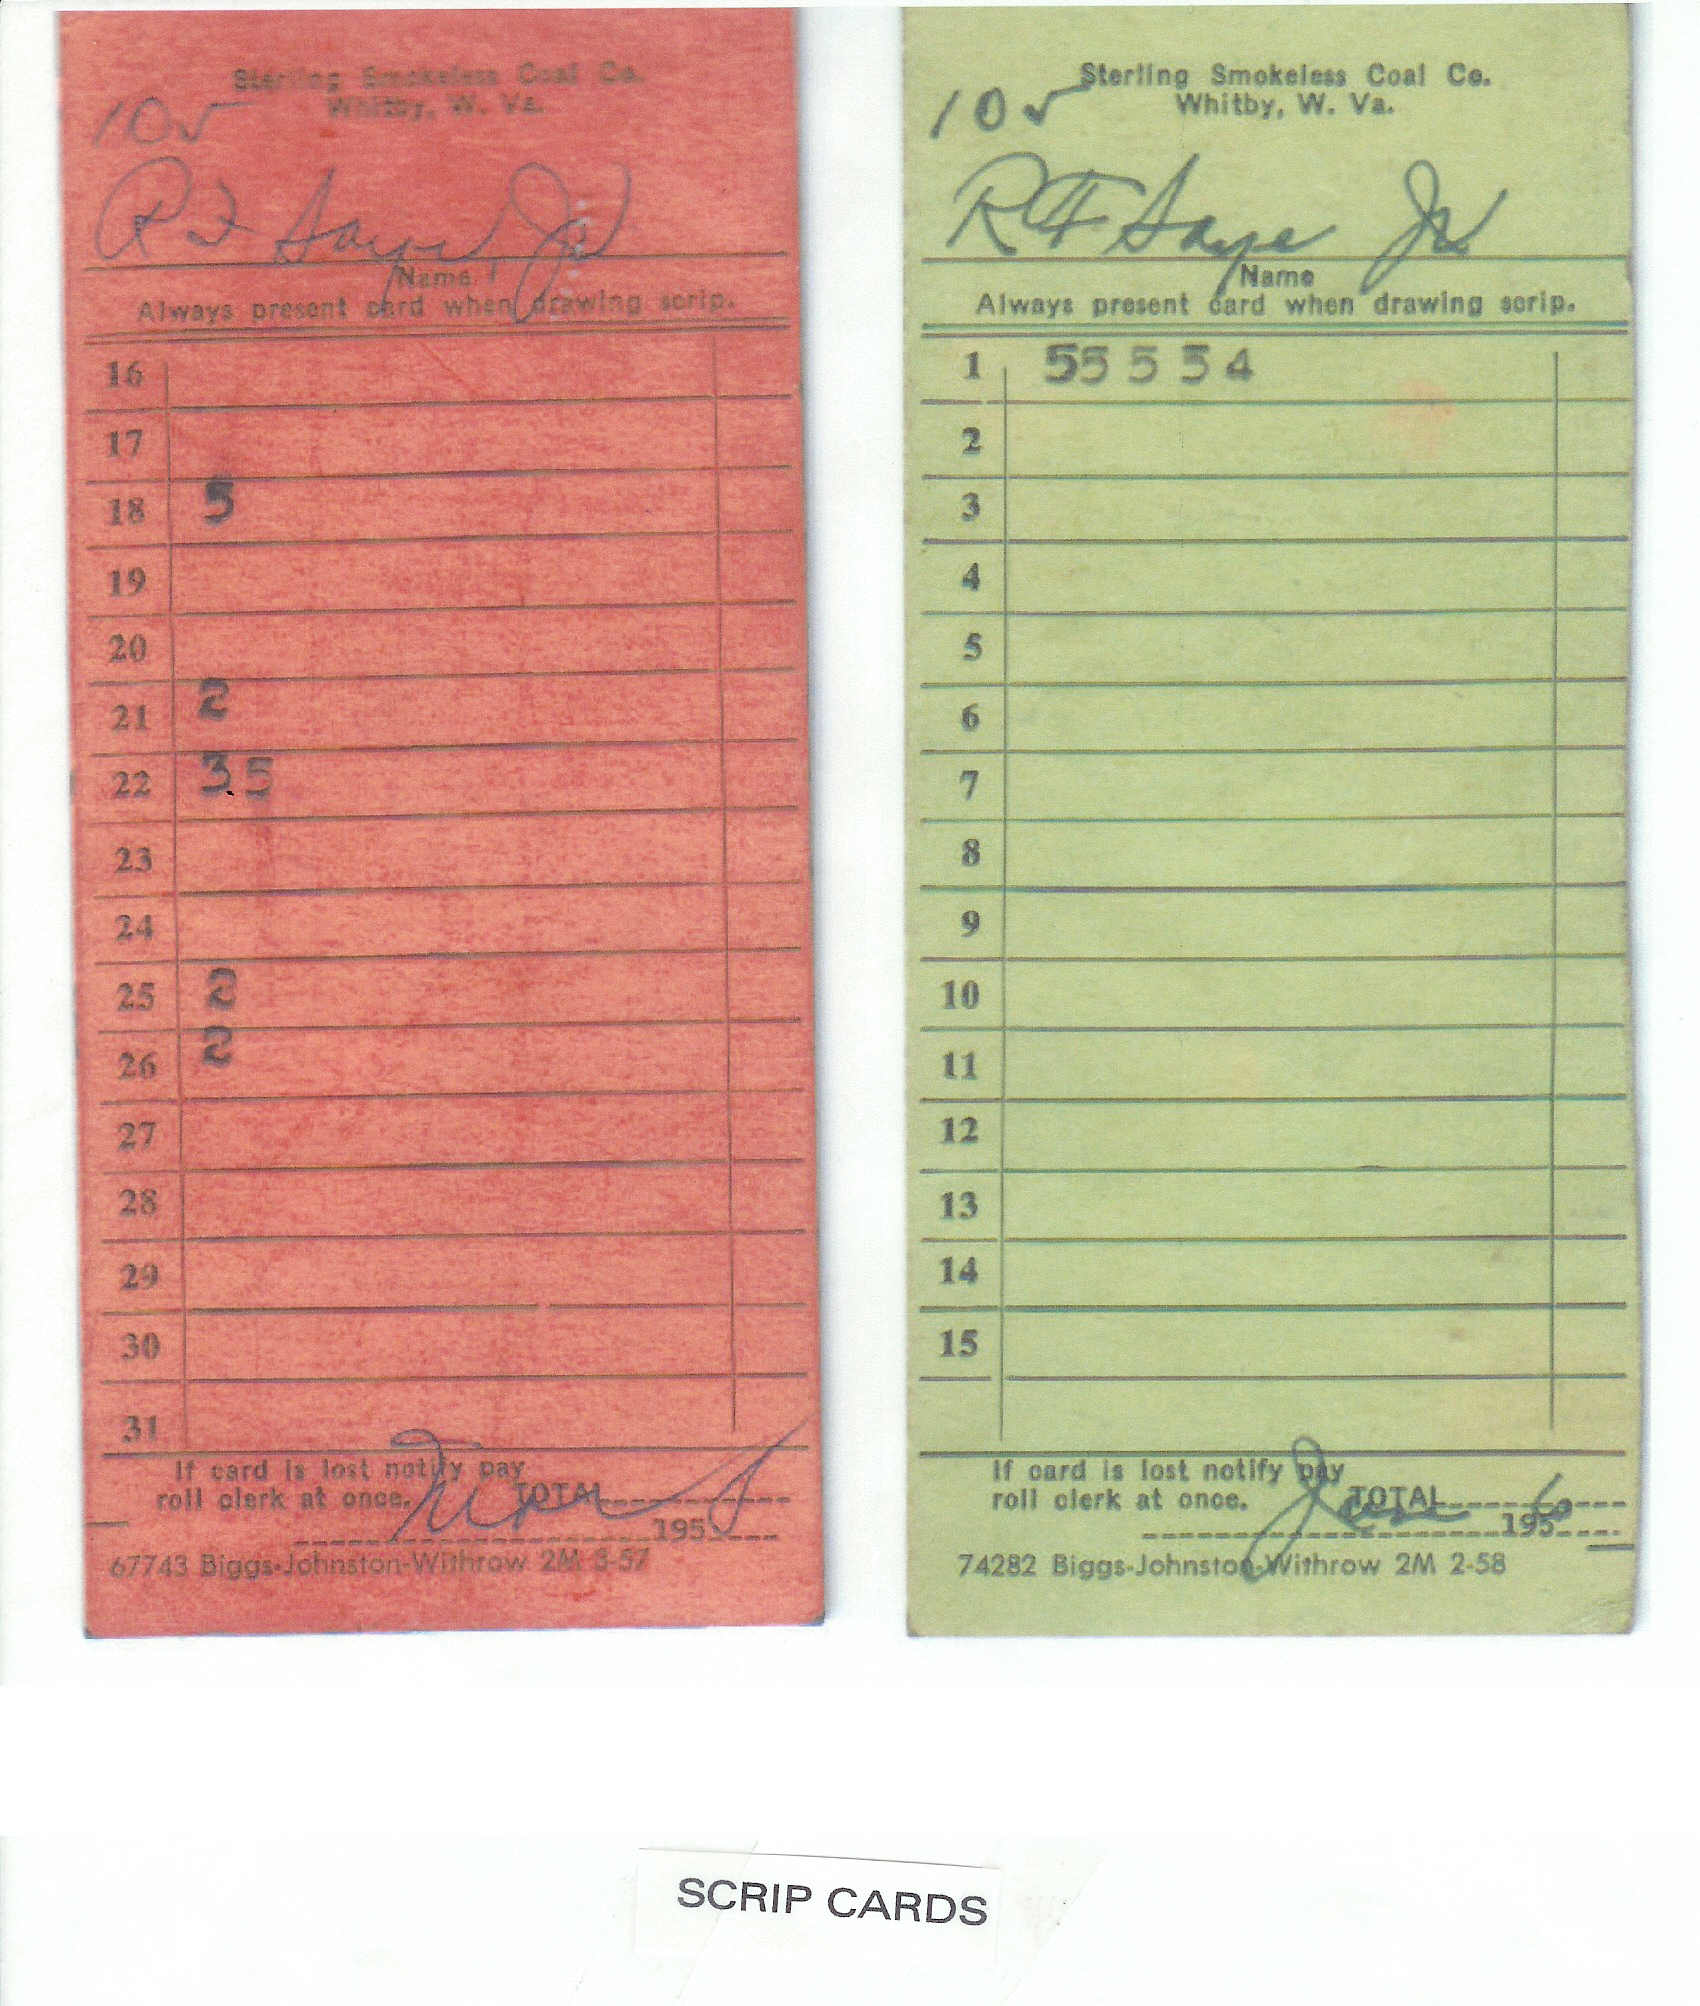 Sterling Smokeless Coal Co.
Whitby, W. Va.
10 ✓
R F Saye, Jr
Name
Always present card when drawing scrip.
16
17
18 5
19
20
21 2
22 3 5
23
24
25 2
26 2
27
28
29
30
31
If card is lost notify pay
roll clerk at once. TOTAL
195
67743 Biggs-Johnston-Withrow 2M 3-57
Sterling Smokeless Coal Co.
Whitby, W. Va.
10 ✓
R F Saye Jr
Name
Always present card when drawing scrip.
1 5 5 5 5 4
2
3
4
5
6
7
8
9
10
11
12
13
14
15
If card is lost notify pay
roll clerk at once. TOTAL
June 195
74282 Biggs-Johnston-Withrow 2M 2-58
SCRIP CARDS